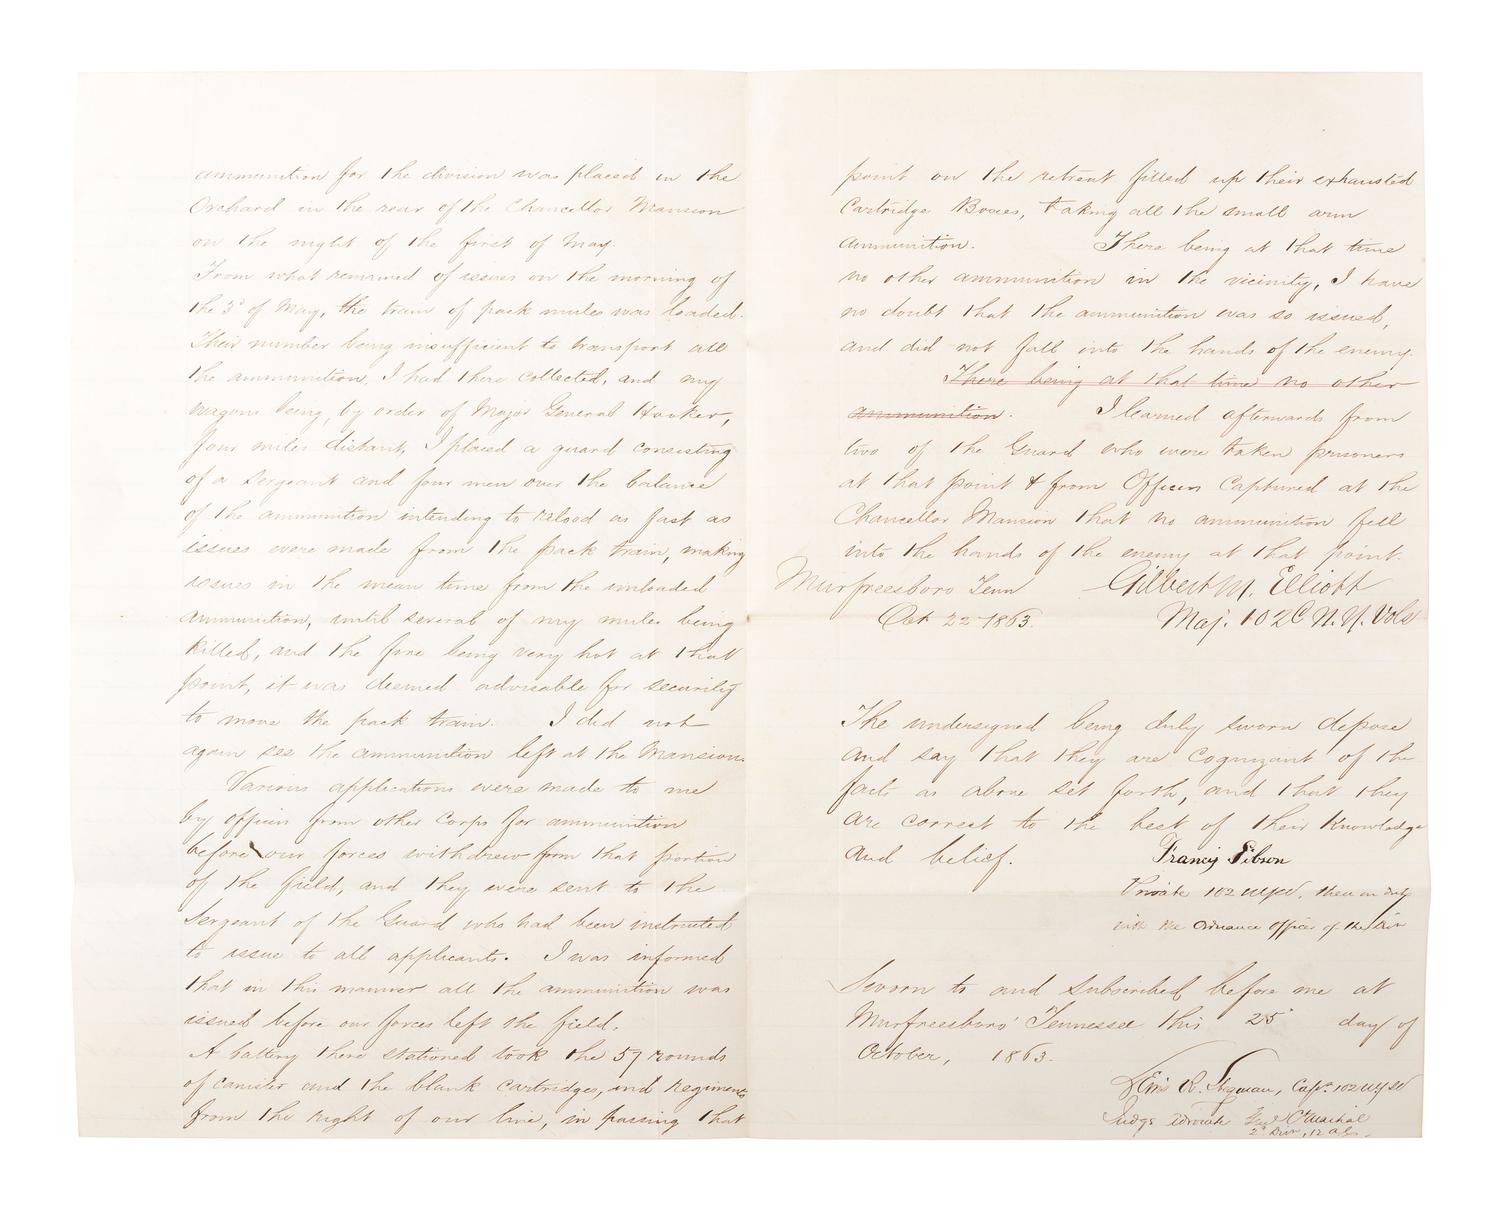 ammunition for the division was placed in the
Orchard in the rear of the Chancellor Mansion
on the night of the first of May.
From what remained of issues on the morning of
the 3d of May, the train of pack mules was loaded.
Their number being insufficient to transport all
the ammunition, I had there collected, and my
wagons being, by order of Major General Hooker,
four miles distant, I placed a guard consisting
of a Sergeant and four men over the balance
of the ammunition intending to reload as fast as
issues were made from the pack train, making
issues in the mean time from the unloaded
ammunition, until several of my mules being
killed, and the fire being very hot at that
point, it was deemed adviseable for security
to move the pack train. I did not
again see the ammunition left at the Mansion.
Various applications were made to me
by officers from other Corps for ammunition
before our forces withdrew from that portion
of the field, and they were sent to the
Sergeant of the Guard who had been instructed
to issue to all applicants. I was informed
that in this manner all the ammunition was
issued before our forces left the field.
A battery there stationed took the 57 rounds
of canister and the blank cartridges, and Regiments
from the right of our line, in passing that
point on the retreat filled up their exhausted
Cartridge Boxes, taking all the small arm
ammunition. There being at that time
no other ammunition in the vicinity, I have
no doubt that the ammunition was so issued,
and did not fall into the hands of the enemy.
There being at that time no other
ammunition. I learned afterwards from
two of the Guard who were taken prisoners
at that point & from Officers Captured at the
Chancellor Mansion that no ammunition fell
into the hands of the enemy at that point.
Murfreesboro Tenn Gilbert M. Elliott
Oct 22 1863. Maj. 102d N.Y. Vols
The undersigned being duly sworn depose
and say that they are cognizant of the
facts as above set forth, and that they
are correct to the best of their knowledge
and belief. Francis Gibson
Private 102 NYSV. then on duty
with the Ordnance officer of the Div
Sworn to and subscribed before me at
Murfreesboro' Tennessee this 25" day of
October, 1863.
R. Stegman, Capt. 102 NYSV
Judge Advocate Genl Ct Martial
2d Div, 12 A.C.